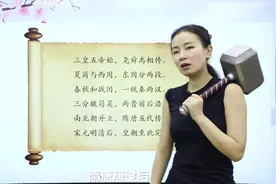 三皇五帝始，尧舜禹相传。
夏商与西周，东周分两段。
春秋和战国，一统秦两汉。
三分魏蜀吴，两晋前后沿
南北朝并立，隋唐五代传
宋元明清后，皇朝至此完